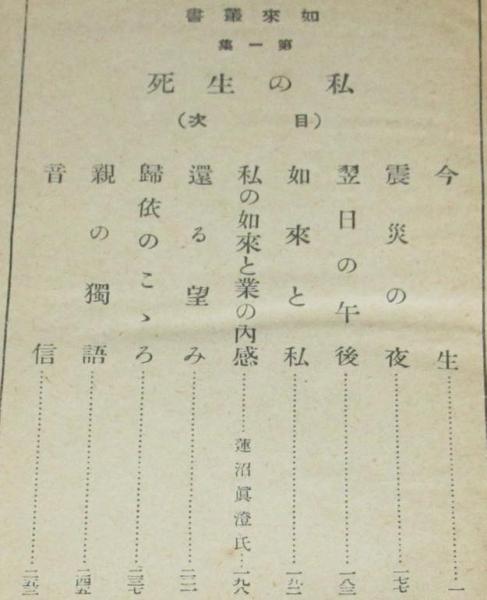 書叢來如
集一第
死生の私
(次目)
今生 一
震災の夜 一七七
翌日の午後 一八三
如來と私 一九二
私の如來と業の內感 蓮沼眞澄氏 一九八
還る望み 二二一
歸依のこゝろ 二三七
親の獨語 二四五
音信 二五三